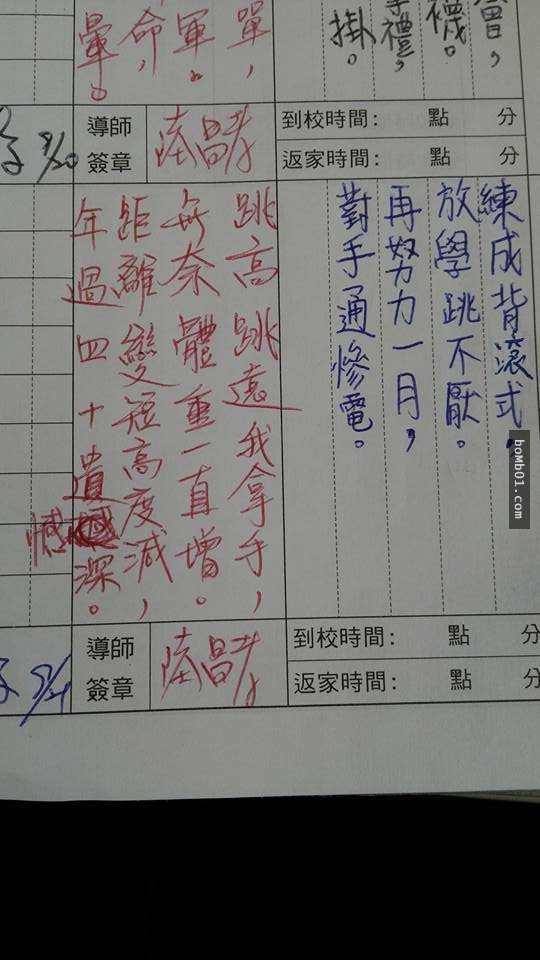 襪。
禮，
掛。
單，
軍。
命，
暈。
到校時間： 點 分
返家時間： 點 分
導師
簽章
陸昌孝
9/20
練成背滾式，
放學跳不厭。
再努力一月，
對手通慘電。
跳高跳遠我拿手，
無奈體重一直增。
距離變短高度減，
年過四十遺憾深。
到校時間： 點 分
返家時間： 點 分
導師
簽章
陸昌孝
boMb01.com